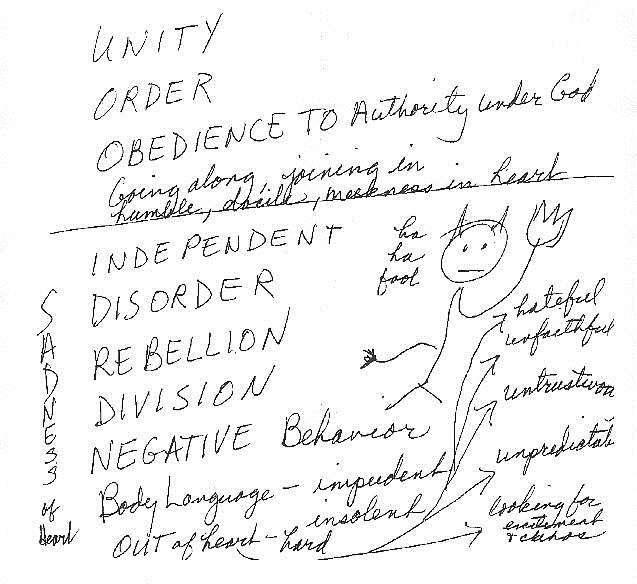 UNITY
ORDER
OBEDIENCE TO Authority under God
Going along, joining in
humble, docile, meekness in heart
INDEPENDENT
DISORDER
REBELLION
DIVISION
NEGATIVE Behavior
Body Language - impudent
insolent
OUT of heart - hard
SADNESS
of
Heart
ha
ha
fool
hateful
unfaithful
untrustwor
unpredictab
looking for
excitement
& chaos